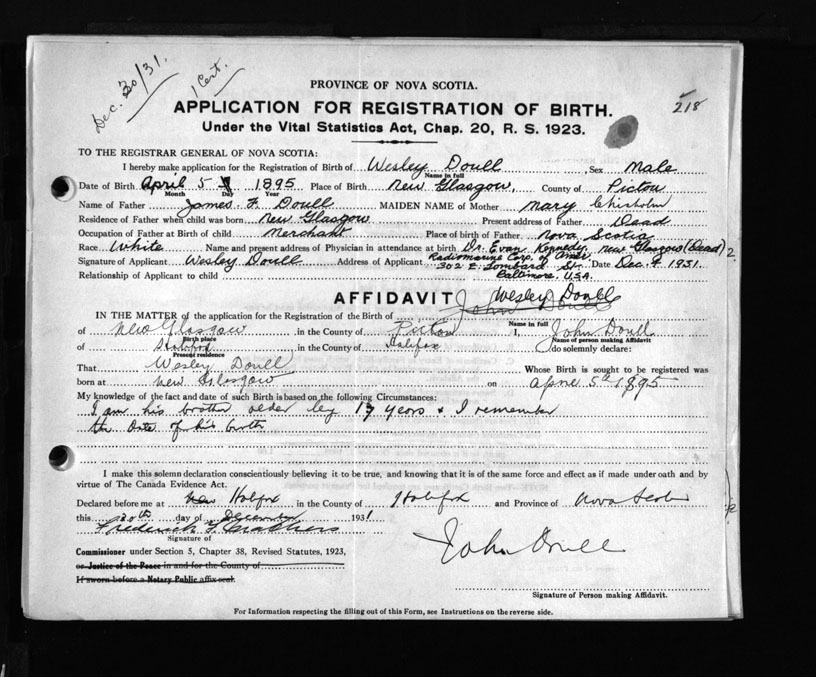 Dec. 30/31.
1 Cert.
218
PROVINCE OF NOVA SCOTIA.
APPLICATION FOR REGISTRATION OF BIRTH.
Under the Vital Statistics Act, Chap. 20, R. S. 1923.
TO THE REGISTRAR GENERAL OF NOVA SCOTIA:
I hereby make application for the Registration of Birth of Wesley Doull, Sex Male
Name in full
Date of Birth April 5 1895 Place of Birth New Glasgow, County of Pictou
Month Day Year
Name of Father James F. Doull MAIDEN NAME of Mother Mary Chisholm
Residence of Father when child was born New Glasgow Present address of Father Dead
Occupation of Father at Birth of child Merchant Place of birth of Father Nova Scotia
Race White Name and present address of Physician in attendance at birth Dr. Evan Kennedy, New Glasgow (Dead)
Signature of Applicant Wesley Doull Address of Applicant Radiomarine Corp. of Amer. 302 E. Lombard St. Baltimore. U.S.A. Date Dec. 9 1931.
Relationship of Applicant to child
AFFIDAVIT
IN THE MATTER of the application for the Registration of the Birth of John Doull Wesley Doull
Name in full
of New Glasgow in the County of Pictou I, John Doull
Birth place Name of person making Affidavit
of Halifax in the County of Halifax do solemnly declare:
Present residence
That Wesley Doull Whose Birth is sought to be registered was
born at New Glasgow on April 5th 1895
My knowledge of the fact and date of such Birth is based on the following Circumstances:
I am his brother older by 17 years & I remember
the date of his birth
I make this solemn declaration conscientiously believing it to be true, and knowing that it is of the same force and effect as if made under oath and by
virtue of The Canada Evidence Act.
Declared before me at New Halifax in the County of Halifax and Province of Nova Scotia
this 30th day of December 1931
Frederick F. Mathers
Signature of
John Doull
Commissioner under Section 5, Chapter 38, Revised Statutes, 1923,
or Justice of the Peace in and for the County of
If sworn before a Notary Public affix seal.
Signature of Person making Affidavit.
For Information respecting the filling out of this Form, see Instructions on the reverse side.